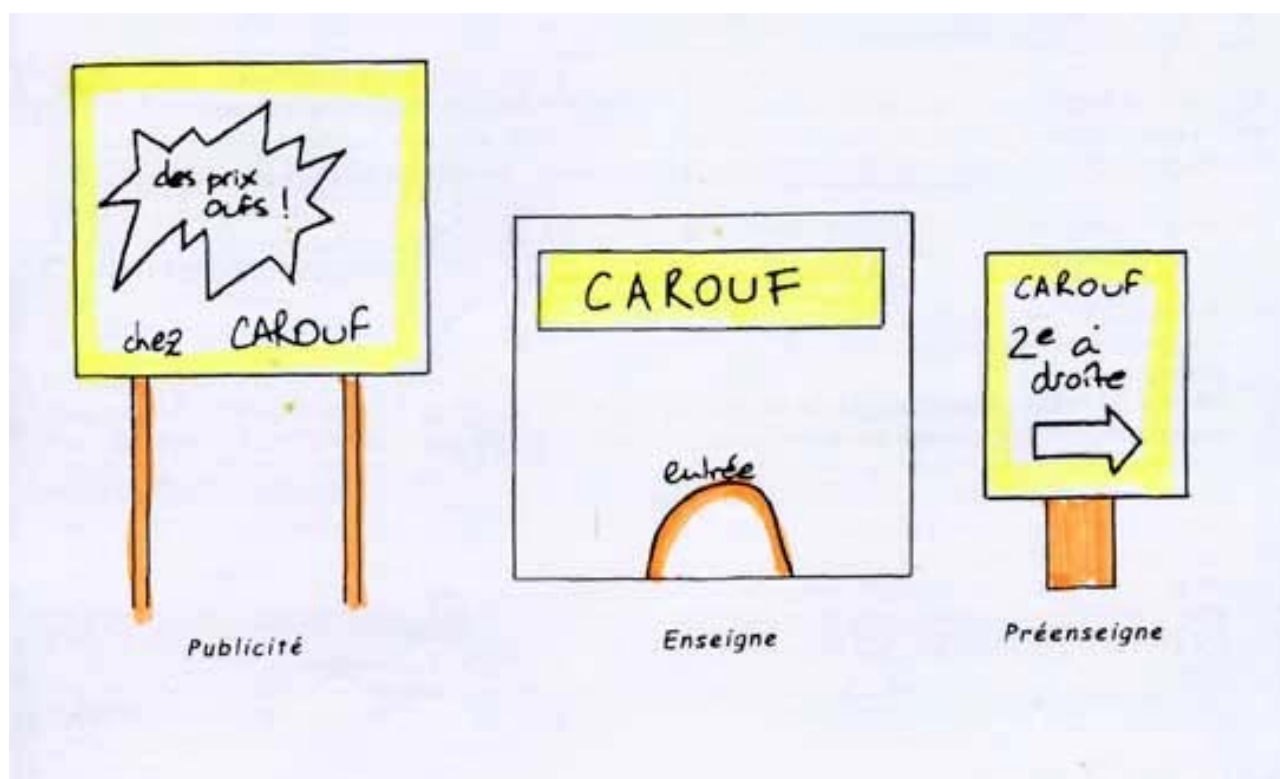 des prix
oufs !
chez CAROUF
Publicité
CAROUF
entrée
Enseigne
CAROUF
2e à
droîte
Préenseigne